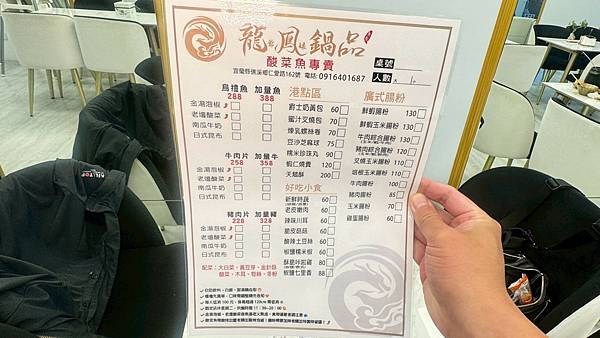 龍鳳鍋品
酸菜魚專賣
宜蘭縣礁溪鄉仁愛路162號 電話:0916401687
桌號
人數
烏禮魚 加量魚
288 388
金湯泡椒
老壇酸菜
南瓜牛奶
日式昆布
牛肉片 加量牛
258 358
金湯泡椒
老壇酸菜
南瓜牛奶
日式昆布
豬肉片 加量豬
228 328
金湯泡椒
老壇酸菜
南瓜牛奶
日式昆布
配菜:大白菜、黃豆芽、金針菇
酸菜、木耳、筍絲、冬粉
港點區
爵士奶黃包 60
蜜汁叉燒包 70
煉乳螺絲卷 70
豆沙芝麻球 75
糯米珍珠丸 90
蝦仁燒賣 120
天鵝酥 200
好吃小食
新鮮時蔬 60
老皮嫩肉 60
辣豉川耳 60
脆皮菇菇 60
酸辣土豆絲 60
椒鹽糯米椒 60
酥脆咔起雞 80
椒鹽七里香 88
廣式腸粉
鮮蝦腸粉 130
鮮蝦玉米腸粉 130
牛肉綜合腸粉 130
豬肉綜合腸粉 120
叉燒玉米腸粉 110
胡椒玉米腸粉 110
牛肉腸粉 100
豬肉腸粉 85
玉米腸粉 70
雞蛋腸粉 60